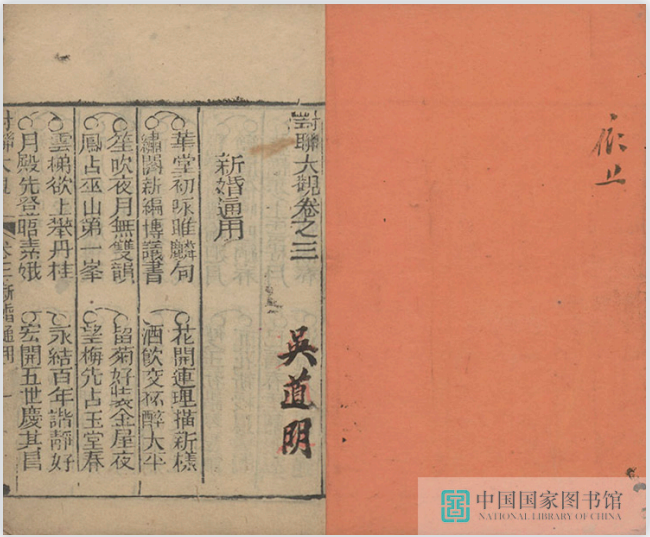 依止
對聯大觀卷之三
吳道明
新婚通用
華堂初咏雎麟句
繡閣新編博議書
花開連理描新樣
酒飲交杯醉太平
笙吹夜月無雙韻
鳳占巫山第一峯
留菊好裝金屋夜
望梅先占玉堂春
雲梯欲上攀丹桂
月殿先登晤素娥
永結百年諧靜好
宏開五世慶其昌
對聯大觀
卷三
新婚通用
一
中国国家图书馆
NATIONAL LIBRARY OF CHINA